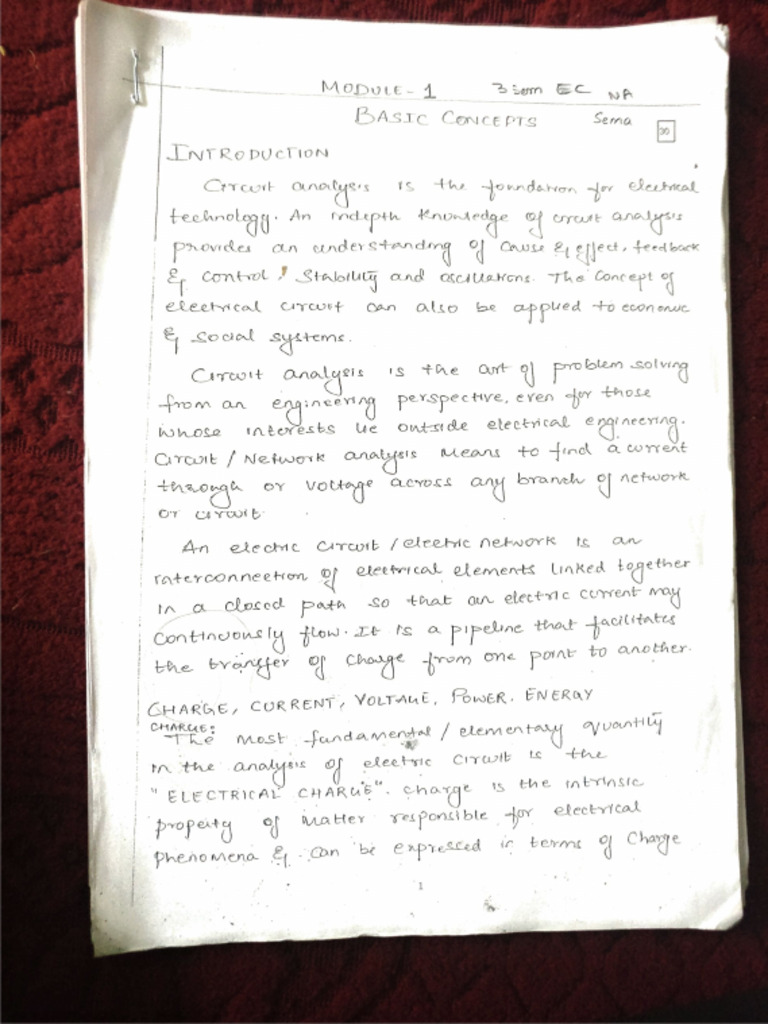 MODULE - 1 3 sem EC NA
BASIC CONCEPTS Sema 30
INTRODUCTION
Circuit analysis is the foundation for electrical
technology. An indepth knowledge of circuit analysis
provides an understanding of cause & effect, feedback
& control, stability and oscillations. The concept of
electrical circuit can also be applied to economic
& social systems.
Circuit analysis is the art of problem solving
from an engineering perspective, even for those
whose interests lie outside electrical engineering.
Circuit / Network analysis means to find a current
through or voltage across any branch of network
or circuit.
An electric circuit / electric network is an
interconnection of electrical elements linked together
in a closed path so that an electric current may
continuously flow. It is a pipeline that facilitates
the transfer of charge from one point to another.
CHARGE, CURRENT, VOLTAGE, POWER. ENERGY
CHARGE:
The most fundamental / elementary quantity
in the analysis of electric circuit is the
"ELECTRICAL CHARGE". charge is the intrinsic
property of matter responsible for electrical
phenomena & can be expressed in terms of charge
1